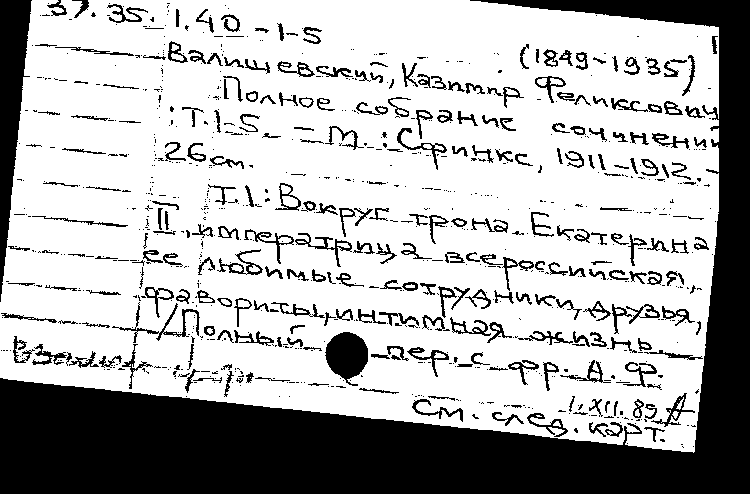 37.35. 1.40-1-5
(1849-1935)
Валишевский, Казимир Феликсович
Полное собрание сочинений
: Т.1-5. - М. : Сфинкс, 1911-1912. -
26 см.
Т.1: Вокруг трона. Екатерина
II, императрица всероссийская,
ее любимые сотрудники, друзья,
фавориты, интимная жизнь.
/Полный пер. с фр. А. Ф.
1.XII.89
См. след. карт.